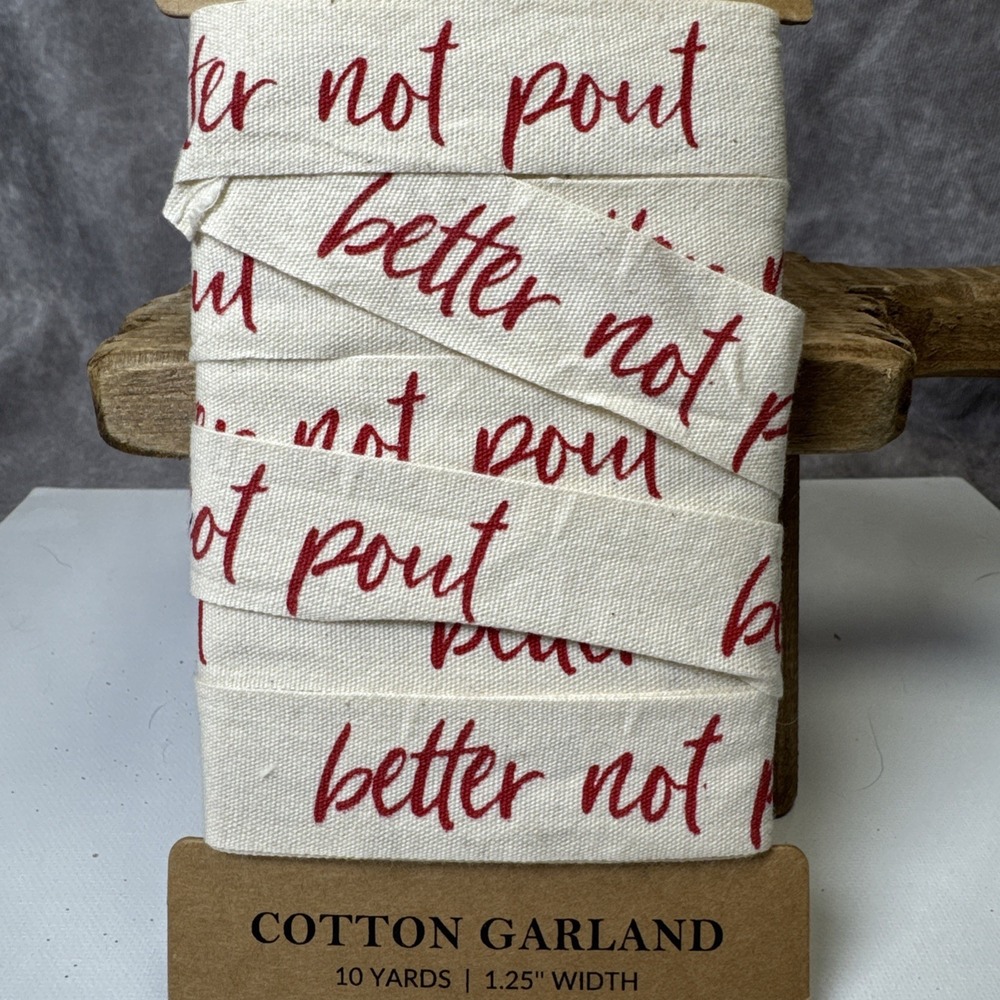 ter not pout
better not p
not pout
not pout
better
better not p
COTTON GARLAND
10 YARDS | 1.25" WIDTH